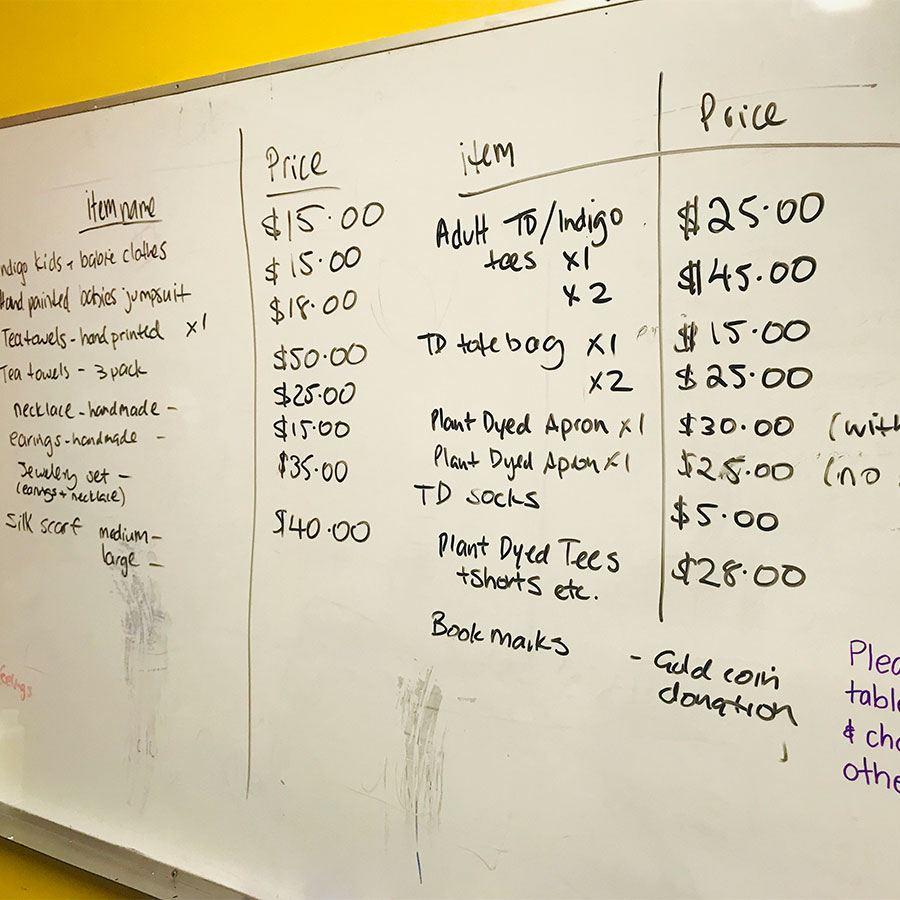 item name Price
Indigo kids + babie clothes $15.00
Hand painted babies jumpsuit $15.00
Teatowels - hand printed x1 $18.00
Tea towels - 3 pack $50.00
necklace - handmade - $25.00
earings - handmade - $15.00
Jewelery set - $35.00
(earings + necklace)
Silk scarf medium - $40.00
large -
item Price
Adult TD/Indigo $25.00
tees x1
x2 $45.00
TD tote bag x1 $15.00
x2 $25.00
Plant Dyed Apron x1 $30.00 (with
Plant Dyed Apron x1 $25.00 (no
TD socks $5.00
Plant Dyed Tees $28.00
+shorts etc.
Bookmarks - Gold coin
donation
Plea
table
& cha
othe
feelings